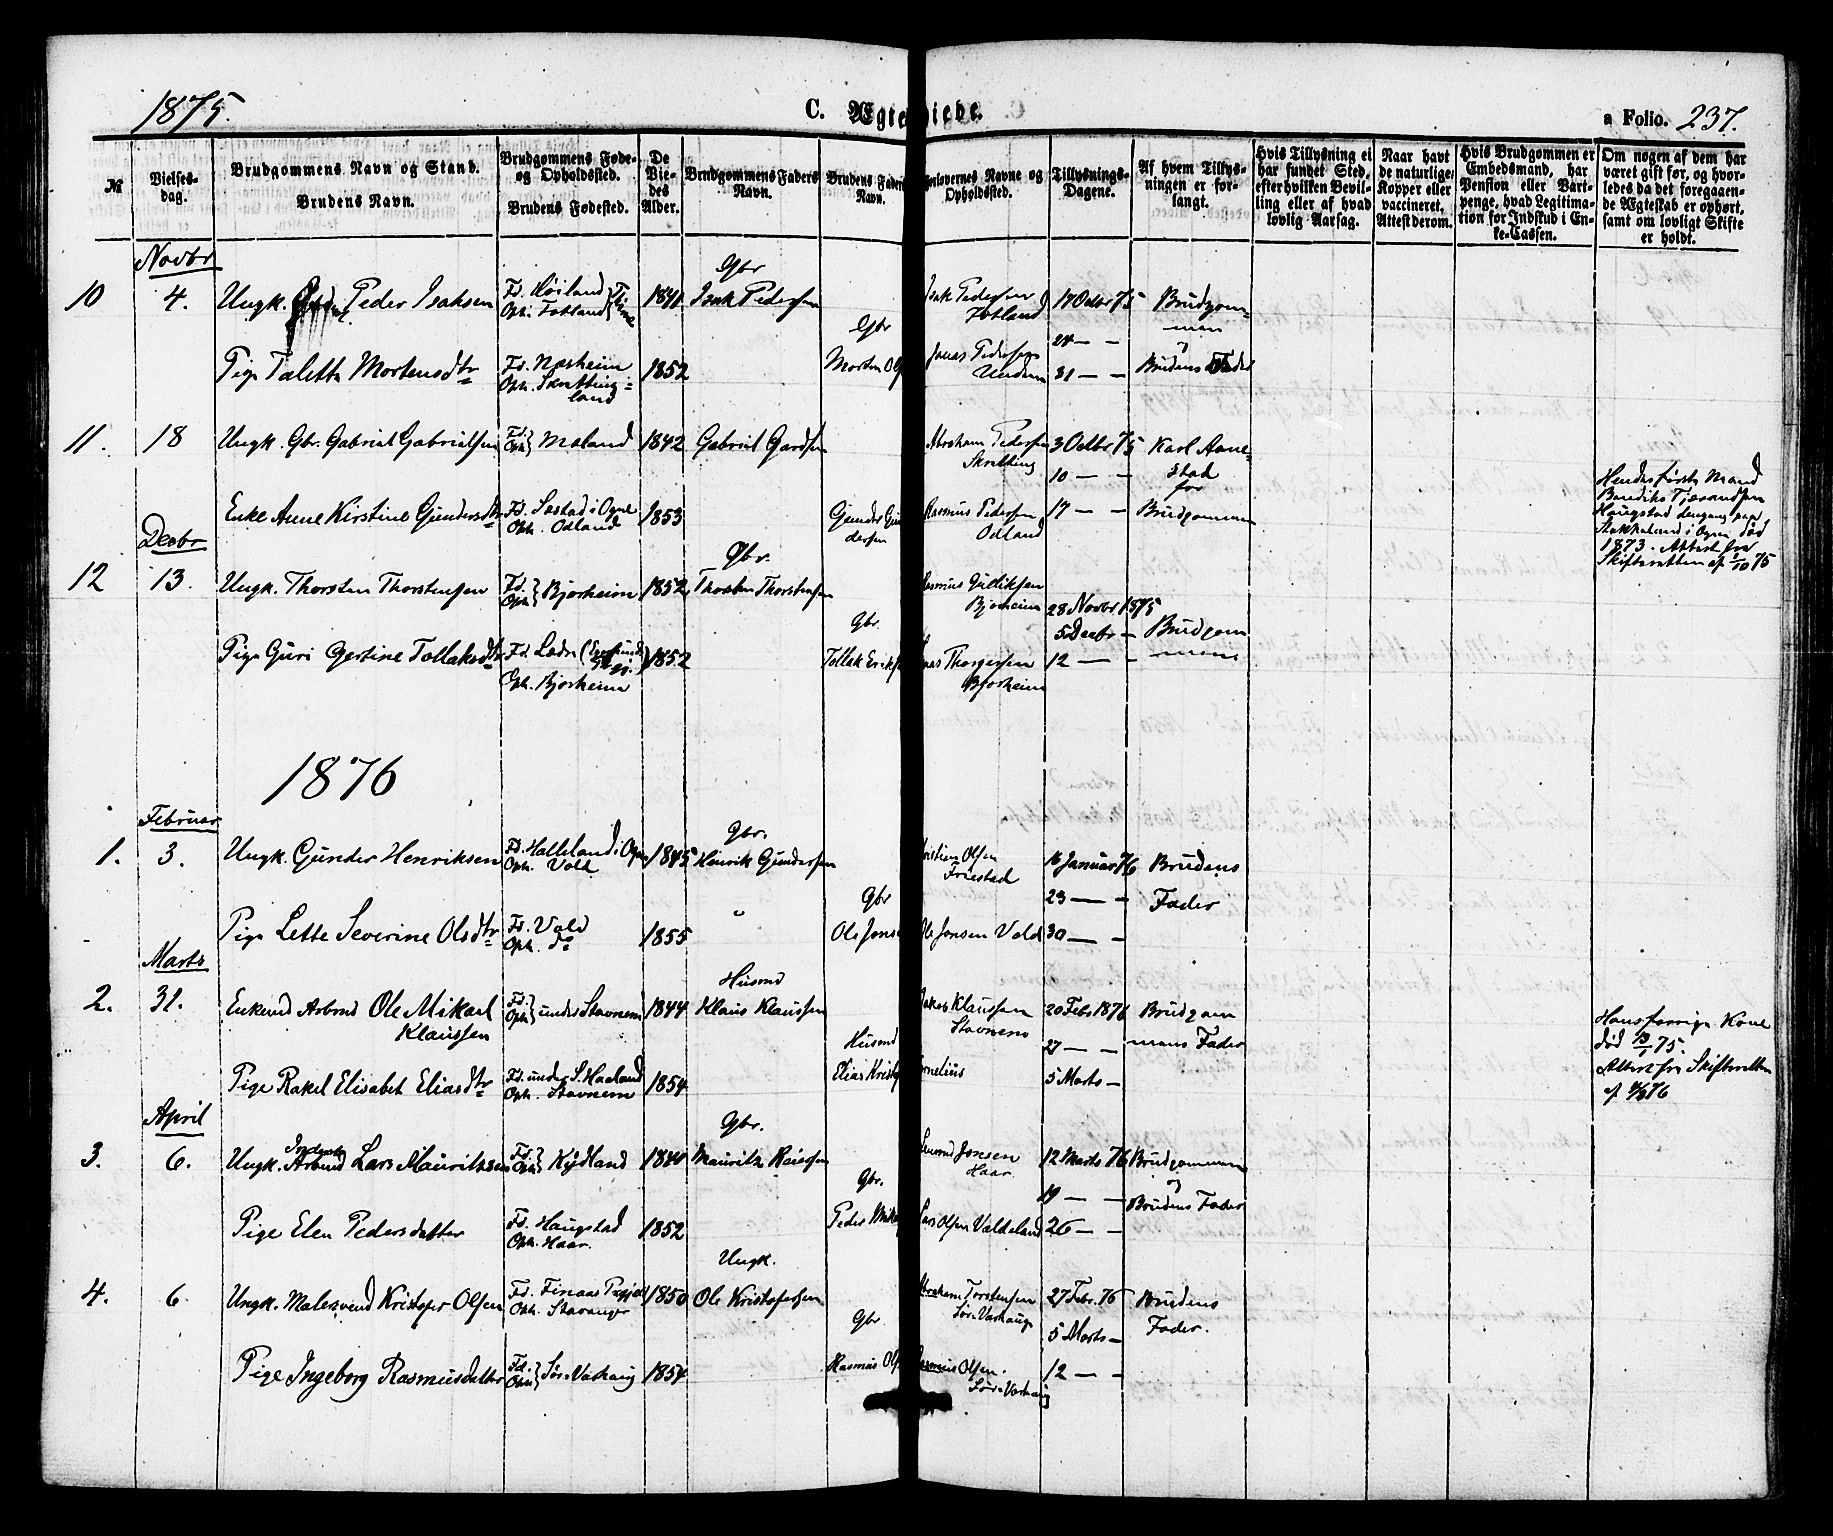 1875.
C. Ægteviede.
a Folio. 237.
№
Vielses-dag.
Brudgommens Navn og Stand.
Brudens Navn.
Brudgommens Føde- og Opholdssted.
Brudens Fødested.
De Viedes Alder.
Brudgommens Faders Navn.
Brudens Faders Navn.
Forlovernes Navne og Opholdssted.
Tillysnings-Dagene.
Af hvem Tillysningen er forlangt.
Hvis Tillysning ei har fundet Sted, efter hvilken Bevilling eller af hvad lovlig Aarsag.
Naar havt de naturlige Kopper eller vaccineret. Attest derom.
Hvis Brudgommen er Embedsmand, har Pension eller Vartpenge, hvad Legitimation for Indskud i Enke-Cassen.
Om nogen af dem har været gift før, og hvorledes da det foregaaende Ægteskab er ophørt, samt om lovligt Skifte er holdt.
Novbr
10 4. Ungk. Peder Isaksen Fd. Høiland Oph. Fotland Time 1840 Gbr Isak Pedersen Isak Pedersen Fotland 17 Octbr 75 Brudgommen
24 — —
Pige Taletta Mortensdtr Fd. Næsheim Oph. Skrettingland 1852 Gbr Morten Ols Jonas Pedersen Undem 31 — — Brudens Fader
11. 18 Ungk. Gbr. Gabriel Gabrielsen Fd. Oph. Moland 1842 Gabriel Gardsen Abraham Pedersen Skretting 3 Octbr 75 Karl Aanestad for
10 — —
Enke Anne Kirstine Gundersdtr Fd. Søstad i Ogne Oph. Odland 1853 Gunder Gundersen Rasmus Pedersen Odland 17 — — Brudgommen
Hendes første Mand
Bendiks Tjærandsen
Haugstad dengang paa
Stokkeland i Ogne død
1873. Attest fra
Skifteretten af 1/10 75
Decbr
12 13. Ungk. Thorsten Thorstensen Fd. Oph. Bjorheim 1852 Gbr. Thorsten Thorstensen Rasmus Gulliksen Bjorheim 28 Novbr 1875
5 Decbr — Brudgommen
Pige Guri Gertine Tollaksdtr Fd. Ladre Oph. Bjorheim 1852 Gbr. Tollak Eriks Thorgersen Bjorheim 12 — —
1876
Februar
1. 3. Ungk. Gunder Henriksen Fd. Halleland i Ogne Oph. Vold 1845 Gbr. Henrik Gundersen Kristian Olsen Friestad 16 Januar 76 Brudens
23 — — Fader
Pige Lette Severine Olsdtr Fd. Vold Oph. do 1855 " Gbr Ole Jonse Ole Jonsen Vold 30 — —
Marts
2. 31. Enkemd Arbmd Ole Mikael Klaussen Fd. Oph. under Stavnem 1844 Husmd Klaus Klaussen Jakob Klaussen Stavnem 20 Febr 1876 Brudgommens Fader
27 — —
Pige Rakel Elisabet Eliasdtr Fd. under S. Haaland Oph. Stavnem 1854 Husmd Elias Krist Cornelius 5 Marts —
Hans forrige Kone
død 13/1 75.
Attest fra Skifteretten
af 4/3 76
April
3. 6. Ungk. Arbmd Lars Mauritzsen Fd. Oph. Kydland 1844 Gbr. Mauritz Reiersen Jonsen Haar 12 Marts 76 Brudgommen og
19 — — Brudens Fader
Pige Elen Pedersdatter Fd. Haugstad Oph. Haar. 1852 Gbr. Peder Mik Lars Olsen Valdeland 26 — —
4. 6. Ungk. Malersvend Kristofer Olsen Fd. Finaas Oph. Stavanger 1850 Ungk. Ole Kristofersen Abraham Torstensen Sør-Varhaug 27 Febr. 76 Brudens
5 Marts — Fader.
Pige Ingeborg Rasmusdatter Fd. Oph. Sør-Varhaug 1854 Gbr. Rasmus Ols Rasmus Olsen. Sør-Varhaug 12 — —